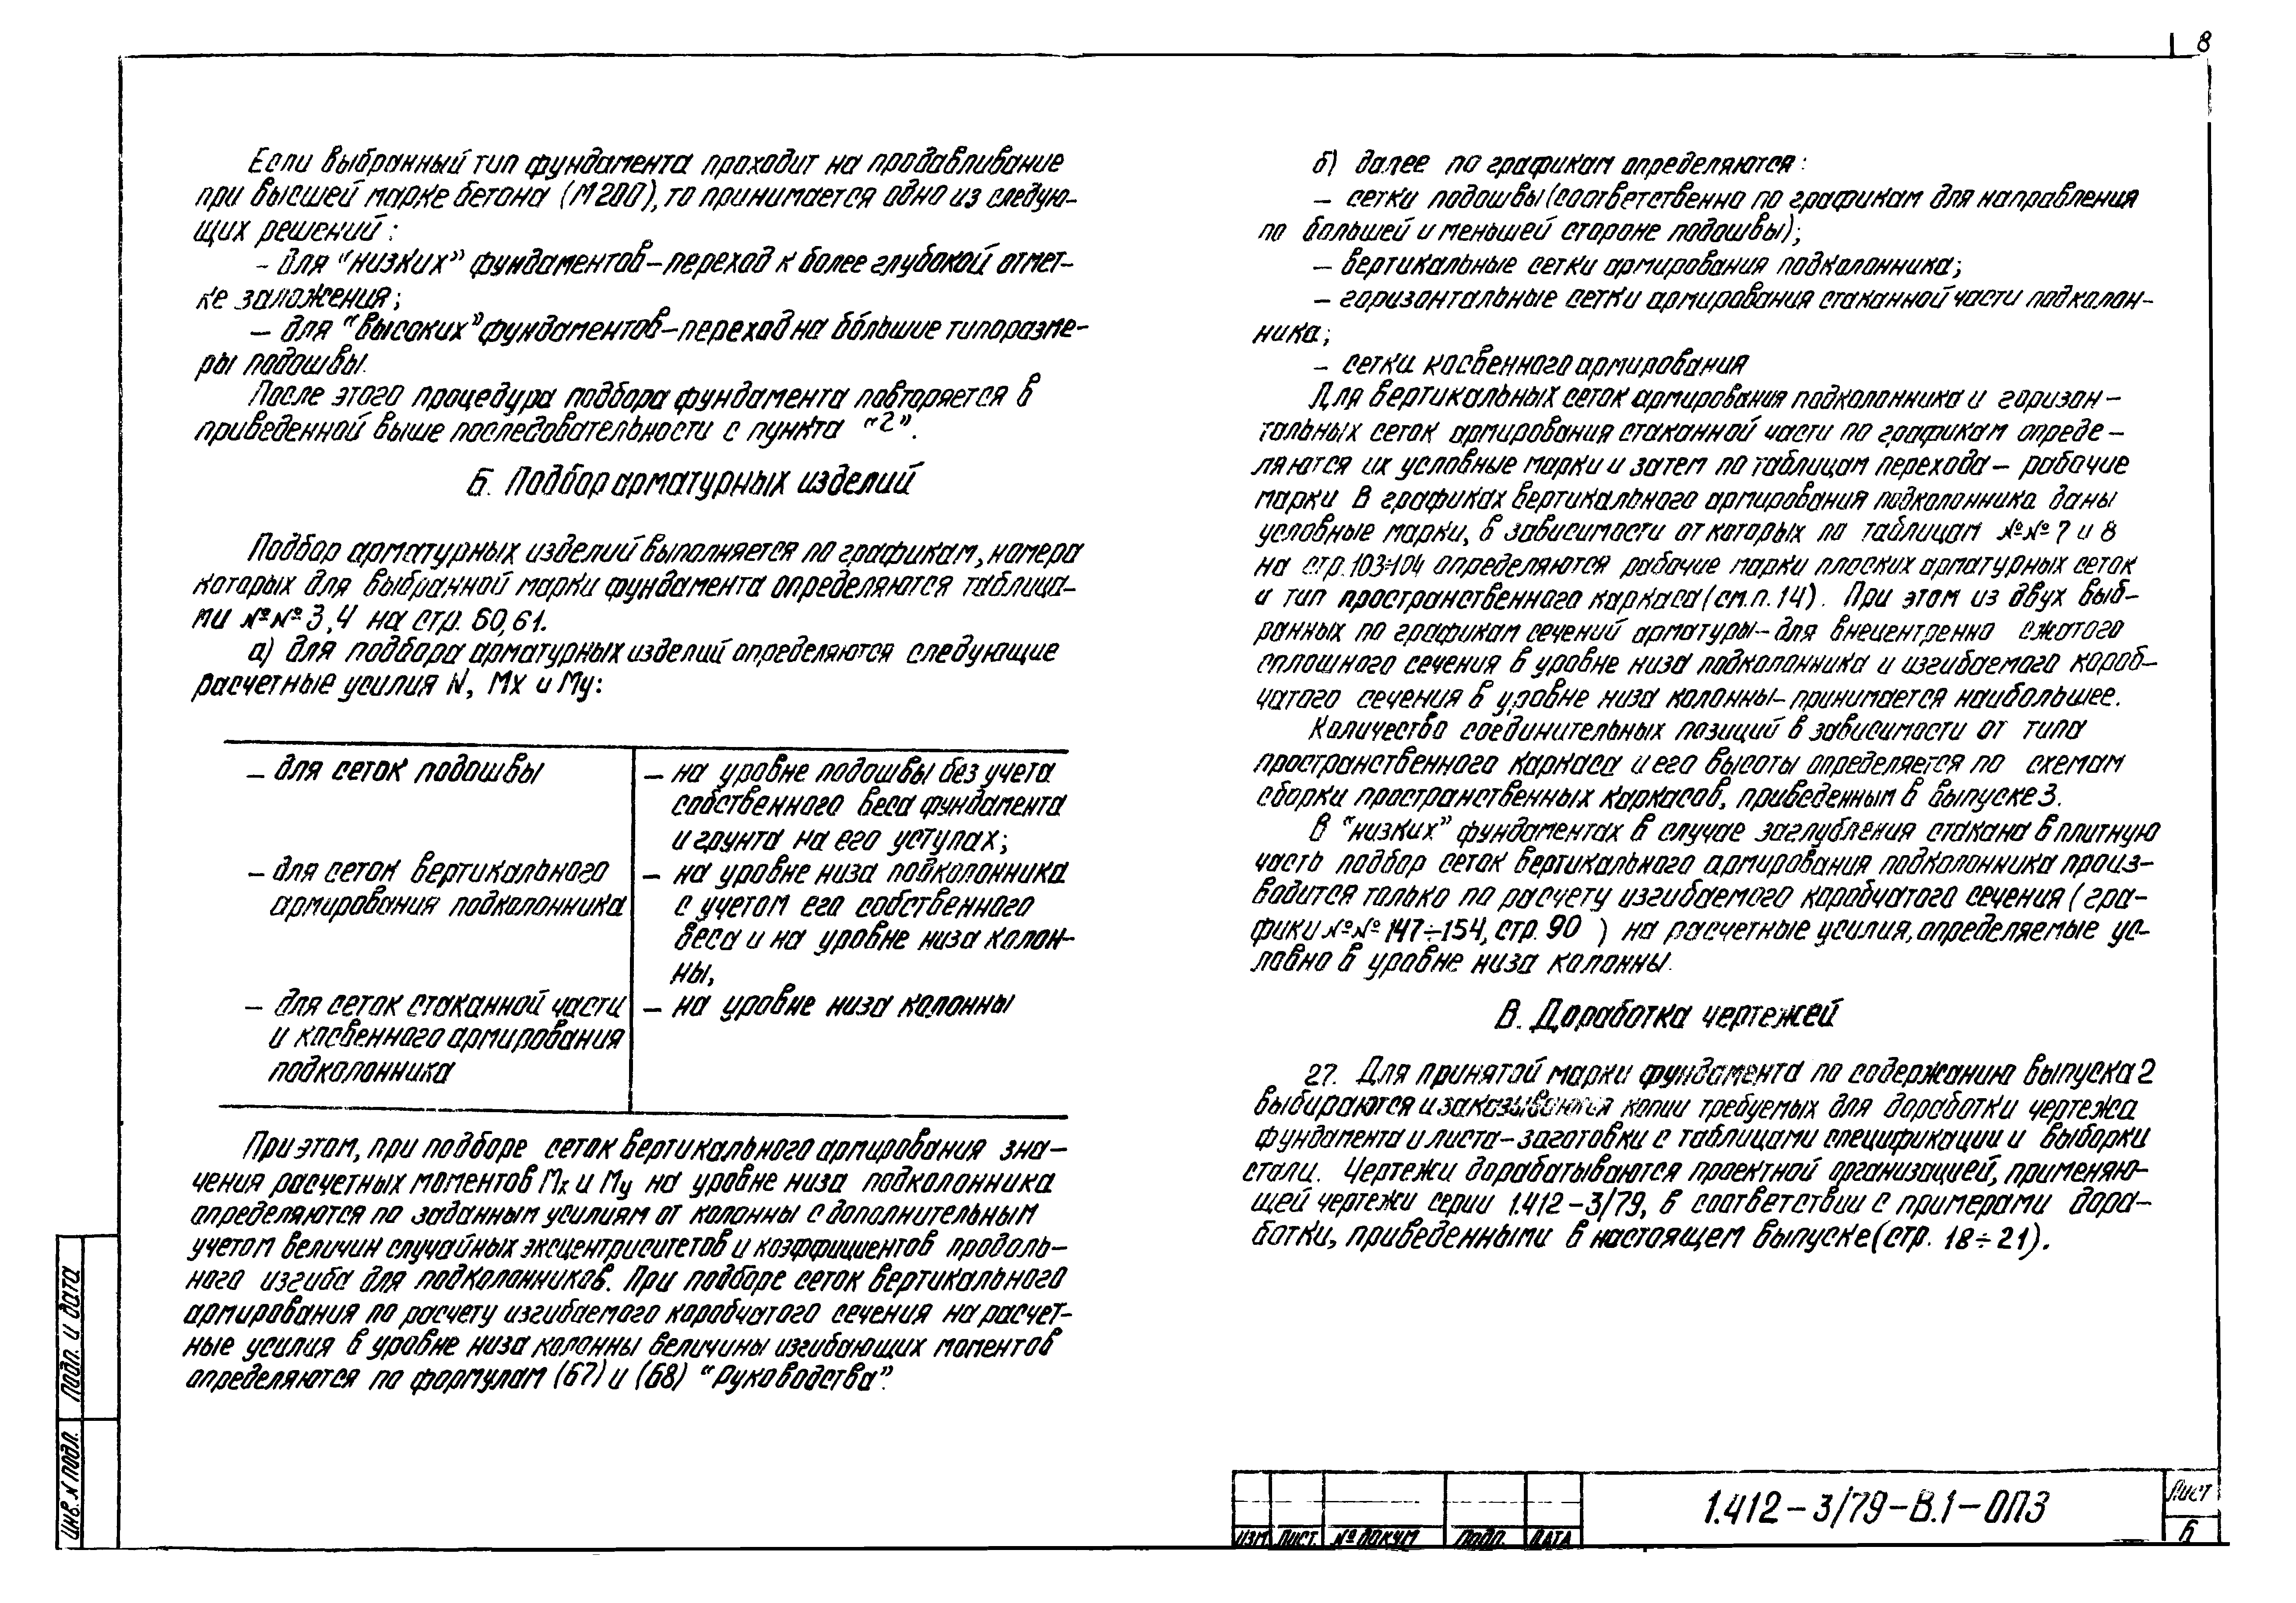 8
Если выбранный тип фундамента проходит на продавливание
при высшей марке бетона (М200), то принимается одно из следую-
щих решений:
- для "низких" фундаментов - переход к более глубокой отмет-
ке заложения;
- для "высоких" фундаментов - переход на бо́льшие типоразме-
ры подошвы.
После этого процедура подбора фундамента повторяется в
приведенной выше последовательности с пункта "2".
Б. Подбор арматурных изделий
Подбор арматурных изделий выполняется по графикам, номера
которых для выбранной марки фундамента определяются таблица-
ми №№ 3,4 на стр. 60,61.
а) для подбора арматурных изделий определяются следующие
расчетные усилия N, Mx и My:
- для сеток подошвы
- на уровне подошвы без учета
собственного веса фундамента
и грунта на его уступах;
- для сеток вертикального
армирования подколонника
- на уровне низа подколонника
с учетом его собственного
веса и на уровне низа колон-
ны,
- для сеток стаканной части
и косвенного армирования
подколонника
- на уровне низа колонны
При этом, при подборе сеток вертикального армирования зна-
чения расчетных моментов Mx и My на уровне низа подколонника
определяются по заданным усилиям от колонны с дополнительным
учетом величин случайных эксцентриситетов и коэффициентов продоль-
ного изгиба для подколонников. При подборе сеток вертикального
армирования по расчету изгибаемого коробчатого сечения на расчет-
ные усилия в уровне низа колонны величины изгибающих моментов
определяются по формулам (67) и (68) "Руководства".
б) далее по графикам определяются:
- сетки подошвы (соответственно по графикам для направления
по большей и меньшей стороне подошвы);
- вертикальные сетки армирования подколонника;
- горизонтальные сетки армирования стаканной части подколон-
ника;
- сетки косвенного армирования
Для вертикальных сеток армирования подколонника и горизон-
тальных сеток армирования стаканной части по графикам опреде-
ляются их условные марки и затем по таблицам перехода - рабочие
марки В графиках вертикального армирования подколонника даны
условные марки, в зависимости от которых по таблицам №№ 7 и 8
на стр. 103÷104 определяются рабочие марки плоских арматурных сеток
и тип пространственного каркаса (см. п. 14). При этом из двух выб-
ранных по графикам сечений арматуры - для внецентренно сжатого
сплошного сечения в уровне низа подколонника и изгибаемого короб-
чатого сечения в уровне низа колонны - принимается наибольшее.
Количество соединительных позиций в зависимости от типа
пространственного каркаса и его высоты определяется по схемам
сборки пространственных каркасов, приведенным в выпуске 3.
В "низких" фундаментах в случае заглубления стакана в плитную
часть подбор сеток вертикального армирования подколонника произ-
водится только по расчету изгибаемого коробчатого сечения (гра-
фики №№ 147÷154, стр. 90 ) на расчетные усилия, определяемые ус-
ловно в уровне низа колонны.
В. Доработка чертежей
27. Для принятой марки фундамента по содержанию выпуска 2
выбираются и заказываются копии требуемых для доработки чертежа
фундамента и листа-заготовки с таблицами спецификации и выборки
стали. Чертежи дорабатываются проектной организацией, применяю-
щей чертежи серии 1.412-3/79, в соответствии с примерами дора-
ботки, приведенными в настоящем выпуске (стр. 18÷21).
Инв. N подл.
Подп. и дата
Изм
Лист.
№ докум
Подп.
Дата
1.412-3/79-В.1-ОПЗ
Лист
6